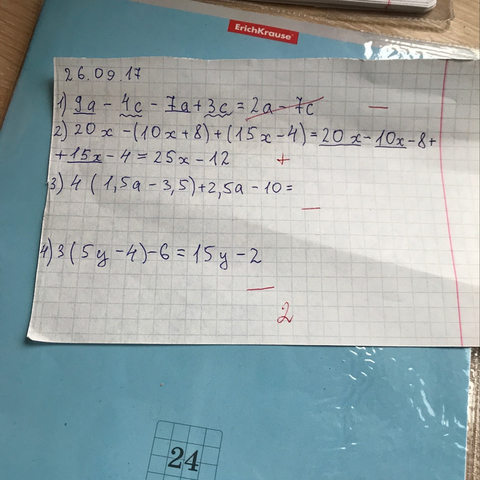 ErichKrause®
26.09.17
1) 9a - 4c - 7a + 3c = 2a - 7c -
2) 20x - (10x + 8) + (15x - 4) = 20x - 10x - 8 +
+ 15x - 4 = 25x - 12 +
3) 4 (1,5a - 3,5) + 2,5a - 10 =
-
4) 3 (5y - 4) - 6 = 15y - 2
-
2
24